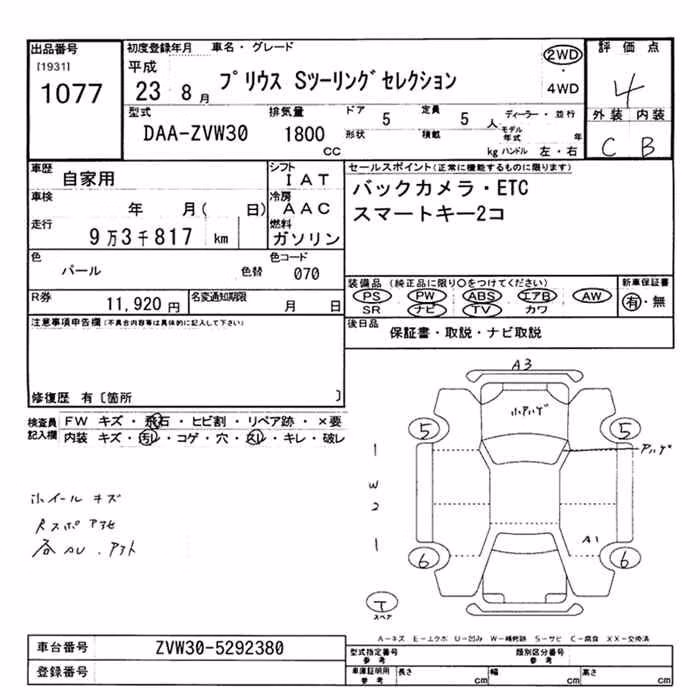 出品番号
[1931]
1077
初度登録年月 車名・グレード
平成
23 8月 プリウス Sツーリングセレクション
2WD
・
4WD
評価点
4
外装 内装
C B
型式
DAA-ZVW30
排気量
1800
CC
ドア 5
形状
定員 5 人
積載 kg
ディーラー・並行
モデル年式 年
ハンドル 左・右
車歴 自家用
車検 年 月( 日)
走行
9万3千817 km
シフト
IAT
冷房
AAC
燃料
ガソリン
セールスポイント(正常に機能するものに限ります)
バックカメラ・ETC
スマートキー2コ
色
パール
色替
色コード
070
R券 11,920円
名変通知期限 月 日
装備品(純正品に限り○をつけてください)
PS PW ABS エアB AW
SR ナビ TV カワ
新車保証書
有・無
後日品 保証書・取説・ナビ取説
注意事項申告欄(不具合内容等は具体的に記入して下さい)
修復歴 有〔箇所 〕
検査員記入欄
FW キズ・飛石・ヒビ割・リペア跡・×要
内装 キズ・汚レ・コゲ・穴・スレ・キレ・破レ
ホイールキズ
A3
5
5
1
W
2
1
A1
6
6
T
スペア
A-キズ E-エクボ U-凹み W-補修跡 S-サビ C-腐食 XX-交換済
車台番号 ZVW30-5292380
登録番号
型式指定番号
参考
類別区分番号
参考
車庫証明用
参考
長さ cm 幅 cm 高さ cm